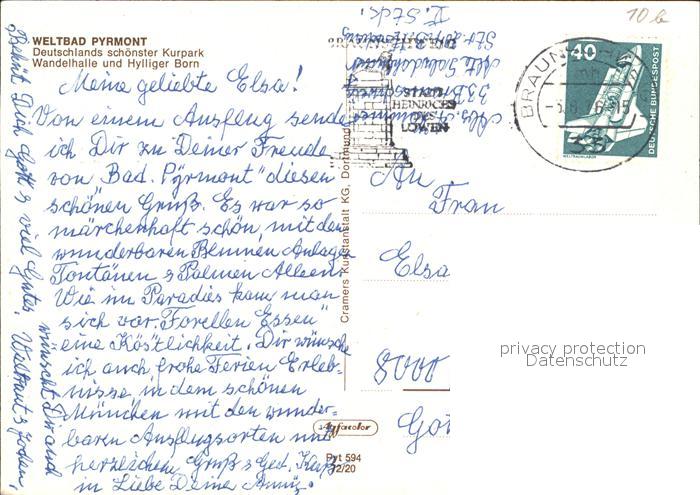 WELTBAD PYRMONT
Deutschlands schönster Kurpark
Wandelhalle und Hylliger Born
Meine geliebte Elsa!
Von einem Ausflug sende
ich Dir zu Deiner Freude
von Bad. Pyrmont" diesen
schönen Gruß. Es war so
märchenhaft schön, mit den
wunderbaren Blumen, Anlagen
Fontänen & Palmen Alleen
Wie im Paradies kam man
sich vor. Forellen Essen"
eine Köstlichkeit. Dir wünsche
ich auch frohe Ferien Erleb-
nisse in dem schönen
München mit den wunder-
baren Ausflugsorten und
herzlichem Gruß & Ged. Kuß
in Liebe Deine
wünscht Dir auch
"Behüt Dich Gott & viel Gutes.
Cramers Kunstanstalt KG, Dortmund
Agfacolor
Pyt 594
32/20
STADT
HEINRICHS
DES
LÖWEN
BRAUNSCH
40
DEUTSCHE BUNDESPOST
WELTRAUMLABOR
10 b
II. Stck.
An
Frau
Elsa
8000
privacy protection
Datenschutz